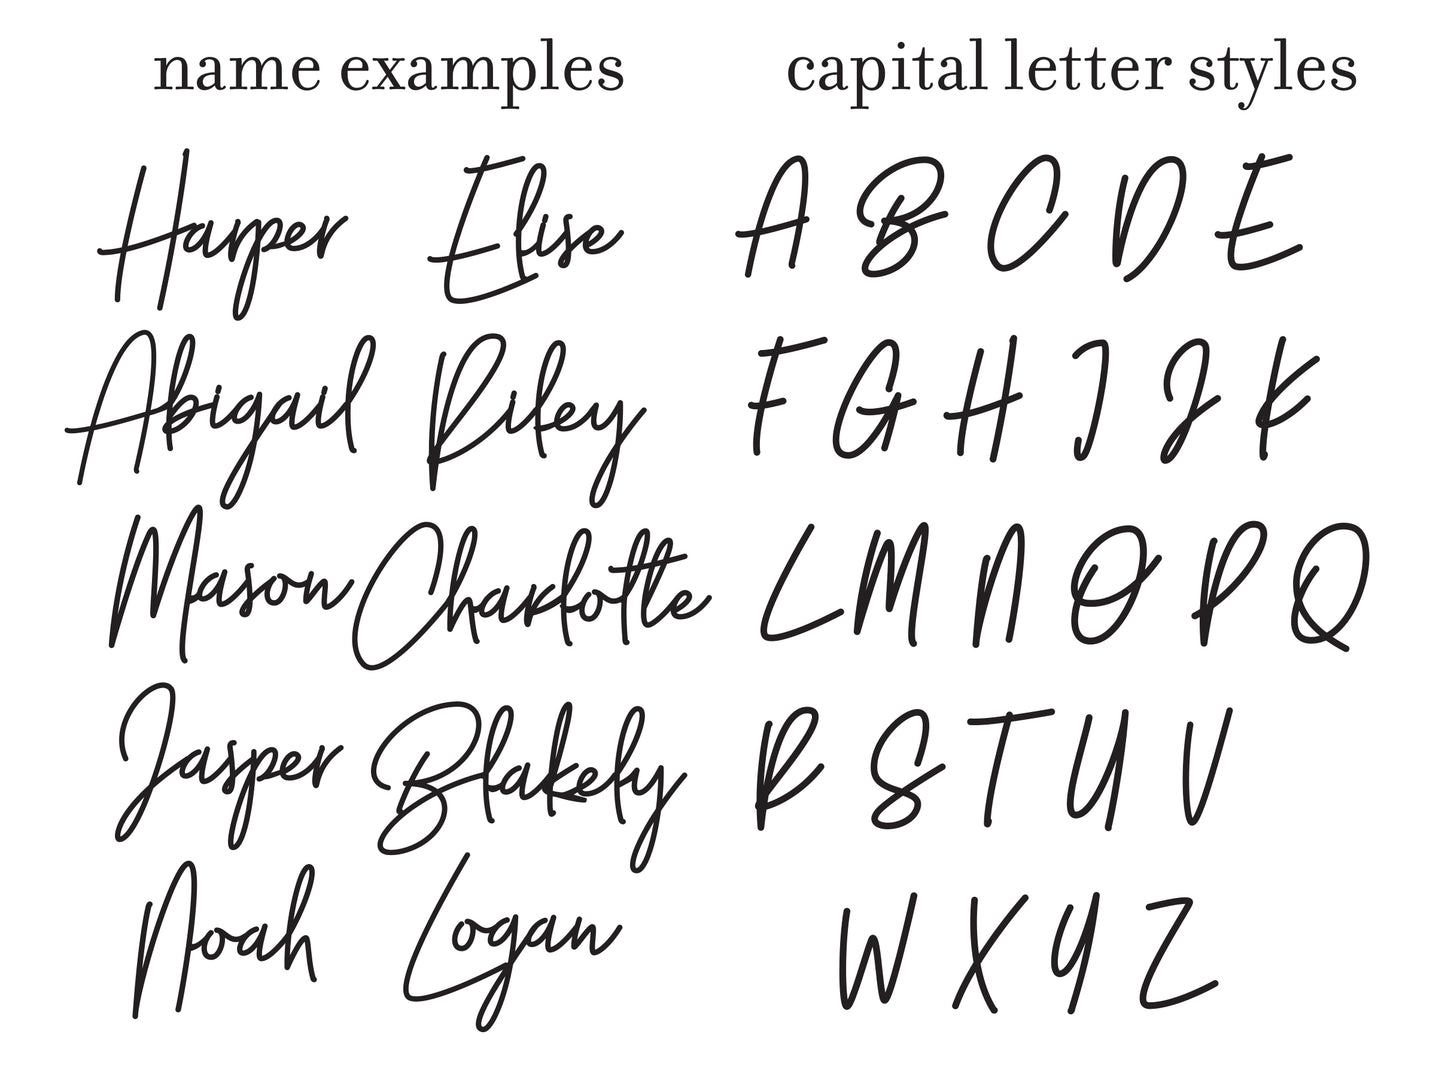 name examples
Harper Elise
Abigail Riley
Mason Charlotte
Jasper Blakely
Noah Logan
capital letter styles
A B C D E
F G H I J K
L M N O P Q
R S T U V
W X Y Z